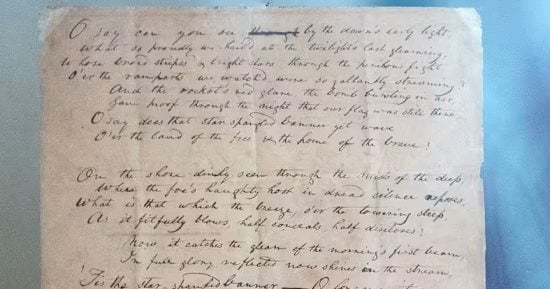 O say can you see through by the dawn's early light,
What so proudly we hail'd at the twilight's last gleaming,
Whose broad stripes & bright stars through the perilous fight
O'er the ramparts we watch'd, were so gallantly streaming?
And the rocket's red glare, the bomb bursting in air,
Gave proof through the night that our flag was still there,
O say does that star spangled banner yet wave
O'er the land of the free & the home of the brave?
On the shore dimly seen through the mists of the deep,
Where the foe's haughty host in dread silence reposes,
What is that which the breeze, o'er the towering steep,
As it fitfully blows, half conceals half discloses?
Now it catches the gleam of the morning's first beam,
In full glory reflected now shines in the stream,
'Tis the star-spangled banner — O